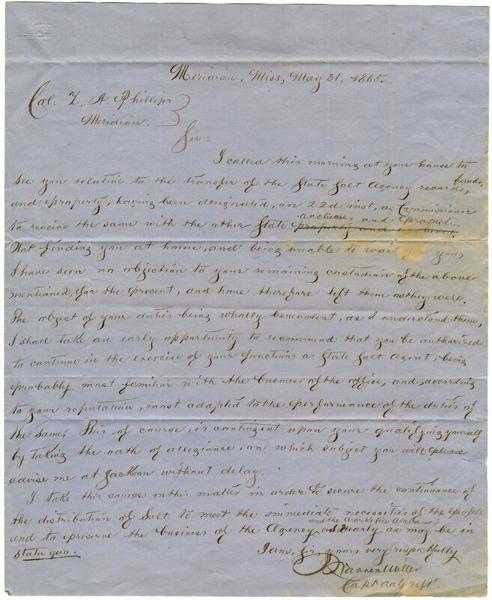 Meridian, Miss, May 31, 1865.
Col. L. A. Phillips
Meridian.
Sir:
I called this morning at your house to
see you relative to the transfer of the State Salt Agency records, funds,
and property, having been designated, on 22d inst, as Commissioner
archives and property
to receive the same with the other State property and
Not finding you at home, and being unable to wait you,
I have seen no objection to your remaining custodian of the above
mentioned, for the present, and have therefore left them as they were.
The object of your duties being wholly benevolent, as I understand them,
I shall take an early opportunity to recommend that you be authorized
to continue in the exercise of your functions as State Salt Agent, being
probably most familiar with the business of the office, and, according
to your reputation, most adapted to the performance of the duties of
the same. This, of course, is contingent upon your qualifying yourself
by taking the oath of allegiance, on which subject you will please
advise me at Jackson without delay.
I take this course in this matter in order to secure the continuance of
the distribution of Salt to meet the immediate necessities of the people
and the
and to preserve the business of the Agency as nearly as may be in
statu quo.
I am, sir, yours very respectfully
Warren Miller
Capt and